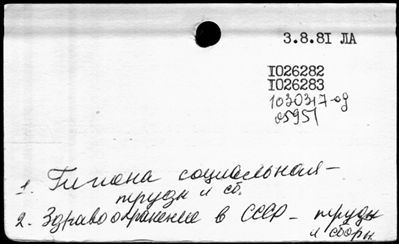 3.8.8I ЛА
I026282
I026283
1030317-од
05951
1. Гигиена социальная –
труды и сб.
2. Здравоохранение в СССР – труды
и сборн.